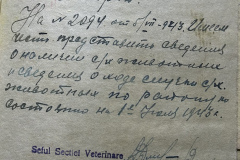 На № 2094 от 5/VII-943. Имеем
честь представить сведения
о наличии с/х животных
и сведения о ходе случки с/х.
животных по району по
состоянию на 1е Июля 1943 г.
Șeful Secției Veterinare